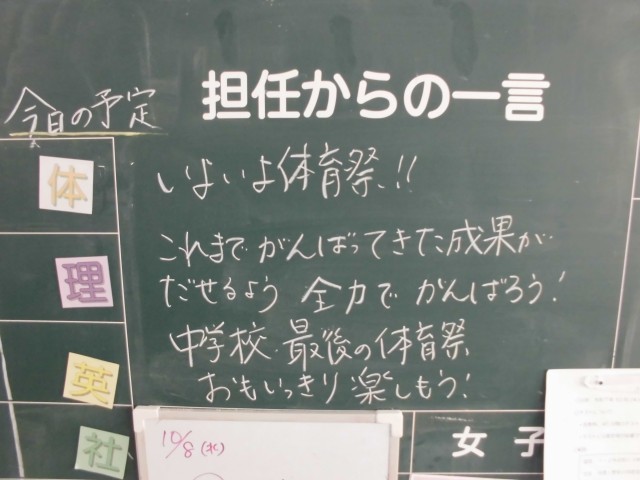 今日の予定
担任からの一言
体
理
英
社
いよいよ体育祭!!
これまで がんばってきた成果が
だせるよう 全力で がんばろう!
中学校 最後の体育祭
おもいっきり 楽しもう!
10/8(水)
女子